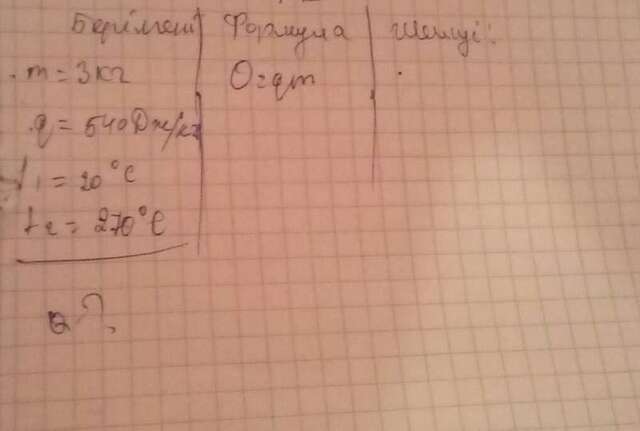 Берілгені Формула Шешуі:
m = 3 кг Q = qm
q = 540 Дж/кг
t₁ = 20°C
t₂ = 270°C
Q?